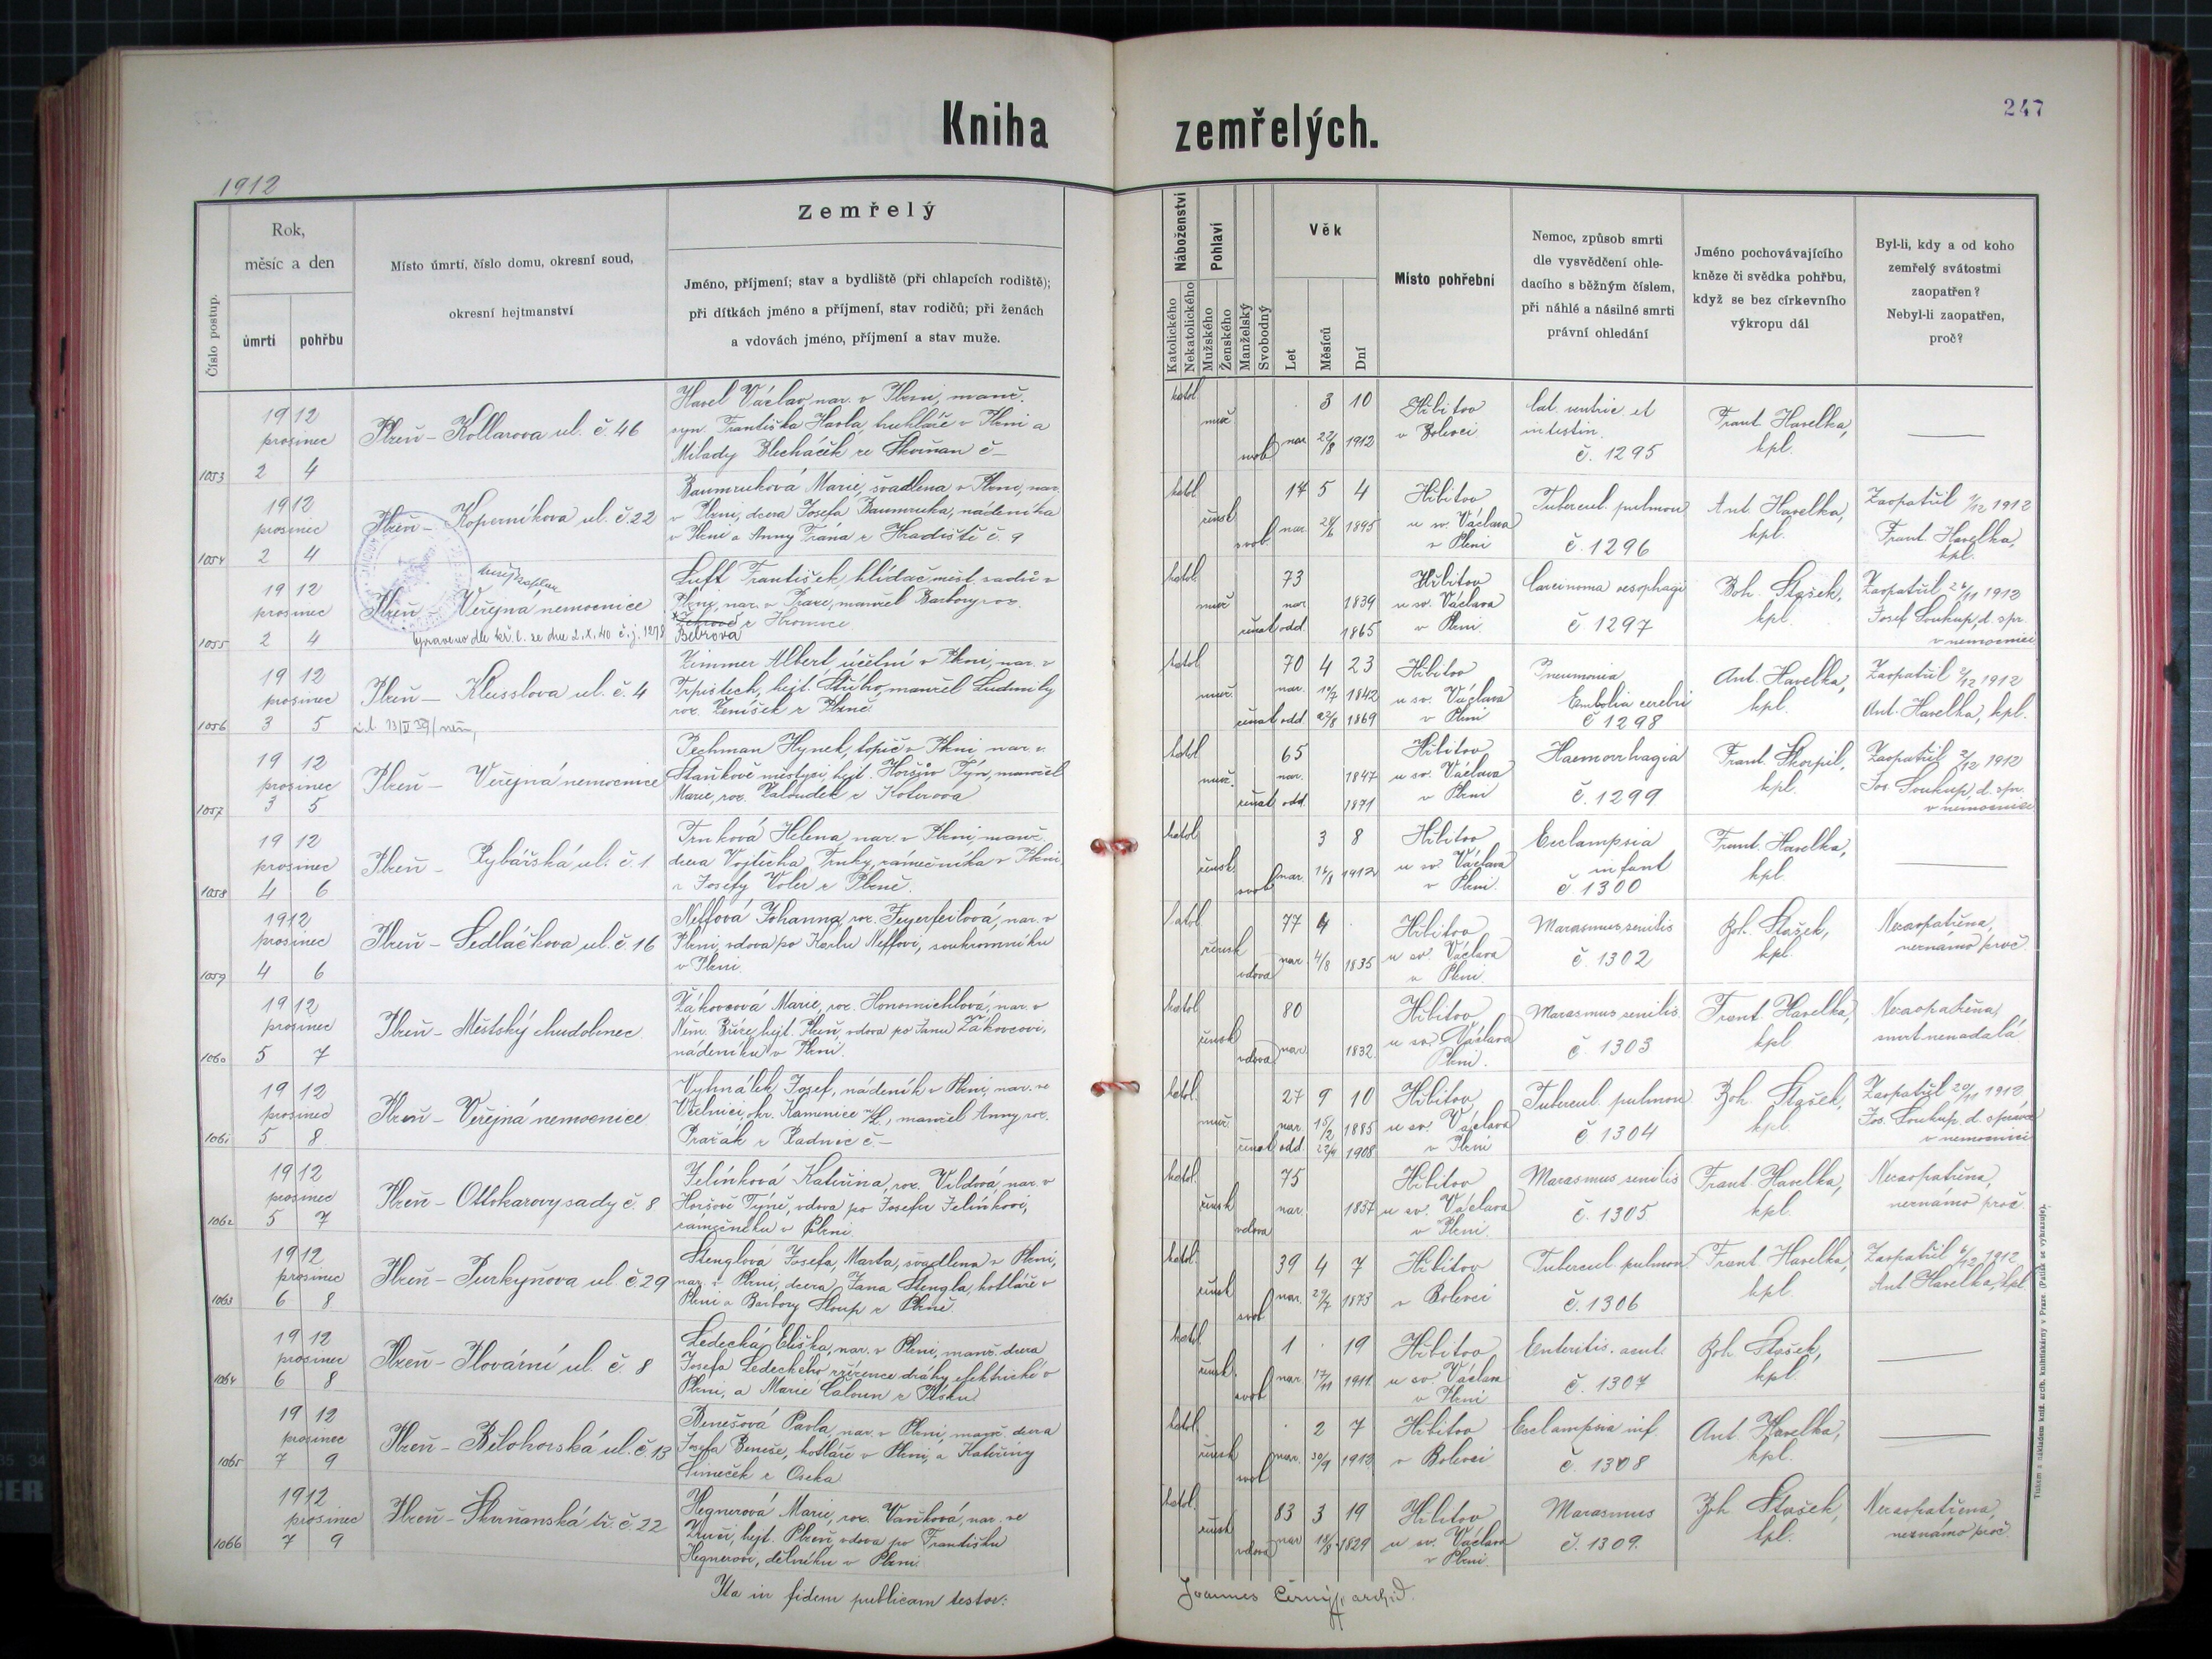 247
Kniha zemřelých.
1912
Číslo postup.
Rok,
měsíc a den
úmrtí
pohřbu
Místo úmrtí, číslo domu, okresní soud,
okresní hejtmanství
Zemřelý
Jméno, příjmení; stav a bydliště (při chlapcích rodiště);
při dítkách jméno a příjmení, stav rodičů; při ženách
a vdovách jméno, příjmení a stav muže.
Náboženství
Katolického
Nekatolického
Pohlaví
Mužského
Ženského
Manželský
Svobodný
Věk
Let
Měsíců
Dní
Místo pohřební
Nemoc, způsob smrti
dle vysvědčení ohle-
dacího s běžným číslem,
při náhlé a násilné smrti
právní ohledání
Jméno pochovávajícího
kněze či svědka pohřbu,
když se bez církevního
výkropu dál
Byl-li, kdy a od koho
zemřelý svátostmi
zaopatřen?
Nebyl-li zaopatřen,
proč?
1053
1912
prosinec
2 4
Plzeň - Kollarova ul. č. 46
Havel Václav, nar. v Plzni, manž.
syn Františka Havla, truhláře v Plzni a
Milady Blecháček ze Skvrňan č -
katol.
muž.
svob.
3 10
nar. 22/8 1912
Hřbitov
v Bolevci
Cat. ventric. et
intestin.
č. 1295
Frant. Havelka,
kpl.
1054
1912
prosinec
2 4
Plzeň - Koperníkova ul. č. 22
Baumruková Marie, švadlena v Plzni, nar.
v Plzni, dcera Josefa Baumruka, nádeníka
v Plzni a Anny Trána z Hradiště č. 9
katol.
žensk.
svob.
17 5 4
nar. 28/6 1895
Hřbitov
u sv. Václava
v Plzni
Tubercul. pulmon
č. 1296
Ant. Havelka,
kpl.
Zaopatřil 1/12 1912
Frant. Havelka,
kpl.
1055
1912
prosinec
2 4
Plzeň - Veřejná nemocnice
Opraveno dle kř. l. ze dne 2.X.40 č.j. 1278
Luft František, hlídač měst. sadů v
Plzni, nar. v Praze, manžel Barbory roz.
z Hromnice
Bebrova
katol.
muž.
ženat
73
nar. 1839
odd. 1865
Hřbitov
u sv. Václava
v Plzni
Carcinoma oesophagi
č 1297
Boh. Stašek,
kpl.
Zaopatřil 26/11 1912
Josef Soukup, d. spr.
v nemocnici
1056
1912
prosinec
3 5
Plzeň - Klusslova ul. č. 4
Zimmer Albert, účetní v Plzni, nar. v
Trpistech, hejt. Stříbro, manžel Ludmily
roz. Ženíšek z Plzně.
katol.
muž.
ženat
70 4 23
nar. 10/7 1842
odd. 22/8 1869
Hřbitov
u sv. Václava
v Plzni
Pneumonia
Embolia cerebri
č 1298
Ant. Havelka,
kpl.
Zaopatřil 2/12 1912
Ant. Havelka, kpl.
1057
1912
prosinec
3 5
Plzeň - Veřejná nemocnice
Pechman Hynek, topič v Plzni nar. v
Staňkově městysi, hejt. Horšův Týn, manžel
Marie, roz. Žaloudek z Koterova
katol.
muž.
ženat
65
nar. 1847
odd. 1871
Hřbitov
u sv. Václava
v Plzni
Haemorrhagia
č. 1299
Frant. Škorpil,
kpl.
Zaopatřil 2/12 1912
Jos. Soukup, d. spr.
v nemocnici
1058
1912
prosinec
4 6
Plzeň - Rybářská ul. č. 1
Trnková Helena nar. v Plzni, manž.
dcera Vojtěcha Trnky, zámečníka v Plzni
a Josefy Voler z Plzně.
katol.
žensk.
svob.
3 8
nar. 26/8 1912
Hřbitov
u sv. Václava
v Plzni.
Ecclampsia
infant
č. 1300
Frant. Havelka,
kpl.
1059
1912
prosinec
4 6
Plzeň - Sedláčkova ul. č. 16
Neffová Johanna, roz. Feyerfeilová, nar. v
Plzni, vdova po Karlu Neffovi, soukromníku
v Plzni.
katol.
žensk
vdova
77 4
nar. 4/8 1835
Hřbitov
u sv. Václava
v Plzni.
Marasmus senilis
č. 1302
Boh. Stašek,
kpl.
Nezaopatřena,
neznámo proč.
1060
1912
prosinec
5 7
Plzeň - Městský chudobinec.
Žákovcová Marie, roz. Honomichlová, nar. v
Něm. Bříze, hejt. Plzeň, vdova po Janu Žákovcovi,
nádeníku v Plzni.
katol
žensk
vdova
80
nar. 1832.
Hřbitov
u sv. Václava
Plzni.
Marasmus senilis
č. 1303
Frant. Havelka,
kpl
Nezaopatřena,
smrt nenadálá
1061
1912
prosinec
5 8.
Plzeň - Veřejná nemocnice
Vyhnálek Josef, nádeník v Plzni, nar. ve
Včelnici, okr. Kamenice n/L., manžel Anny roz.
Pražák z Radnic č -
katol.
muž.
ženat
27 9 10
nar. 15/2 1885
odd. 22/4 1908
Hřbitov
u sv. Václava
v Plzni
Tubercul. pulmon
č. 1304
Boh. Stašek,
kpl.
Zaopatřil 20/11 1912
Jos. Soukup d. správce
v nemocnici
1062
1912
prosinec
5 7
Plzeň - Ottokarovy sady č. 8
Jelínková Kateřina, roz. Vildová nar. v
Horšově Týně, vdova po Josefu Jelínkovi,
zámečníku v Plzni.
katol.
žensk
vdova
75
nar. 1837
Hřbitov
u sv. Václava
v Plzni.
Marasmus senilis
č. 1305.
Frant. Havelka,
kpl.
Nezaopatřena,
neznámo proč.
1063
1912
prosinec
6 8
Plzeň - Purkyňova ul. č. 29
Stenglová Josefa, Marta, švadlena v Plzni,
nar. v Plzni, dcera Jana Stengla, kotláře v
Plzni a Barbory Sloup z Plzně.
katol.
žensk
svob
39 4 7
nar. 29/7 1873
Hřbitov
v Bolevci
Tubercul. pulmon
č. 1306
Frant. Havelka,
kpl.
Zaopatřil 6/12 1912
Ant. Havelka, kpl.
1064
1912
prosinec
6 8
Plzeň - Plovární ul. č. 8
Ledecká Eliška, nar. v Plzni, manž. dcera
Josefa Ledeckého zřízence dráhy elektrické v
Plzni, a Marie Caloun z Písku
katol.
žensk.
svob
1 . 19
nar. 17/11 1911.
Hřbitov
u sv. Václava
v Plzni
Enteritis. acut.
č. 1307
Boh. Stašek,
kpl.
1065
1912
prosinec
7 9
Plzeň - Bělohorská ul. č. 13
Benešová Pavla, nar. v Plzni, manž. dcera
Josefa Beneše, kotláře v Plzni, a Kateřiny
Šimeček z Oseka
katol.
žensk
svob
. 2 7
nar. 30/9 1912
Hřbitov
v Bolevci
Ecclampsia inf.
č. 1308
Ant. Havelka,
kpl.
1066
1912
prosinec
7 9
Plzeň - Skvrňanská tř. č. 22
Hegnerová Marie, roz. Vaňková, nar. ve
Zruči, hejt. Plzeň, vdova po Františku
Hegnerovi, dělníku v Plzni.
katol.
žensk
vdova
83 3 19
nar 18/8 1829
Hřbitov
u sv. Václava
v Plzni.
Marasmus
č. 1309.
Boh. Stašek,
kpl.
Nezaopatřena,
neznámo proč.
Ita in fidem publicam testor:
Joannes Černý, archid.